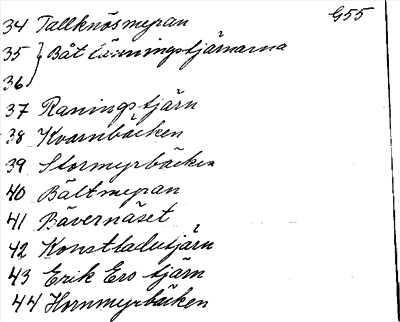 G55
34 Tallknösmyran
35 } Båt Länningstjärnarna
36
37 Raningstjärn
38 Kvarnbäcken
39 Stormyrbäcken
40 Bältmyran
41 Bävernäset
42 Konstladutjärn
43 Erik Ers tjärn
44 Hornmyrbäcken